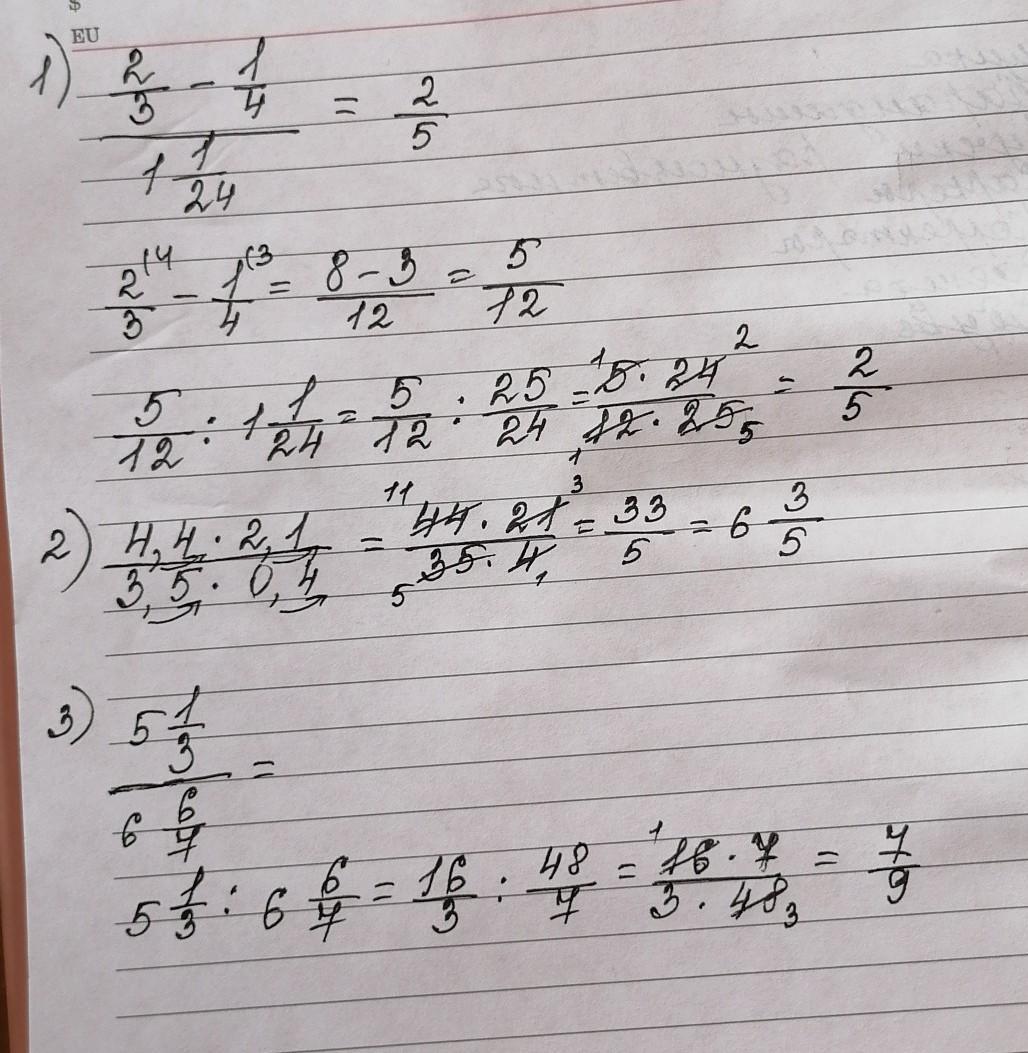 $
EU
1) (2/3 - 1/4) / (1 1/24) = 2/5
2/3 (4 - 1/4 (3 = (8-3)/12 = 5/12
5/12 : 1 1/24 = 5/12 : 25/24 = (¹5 · 24²)/(₁12 · 25₅) = 2/5
2) (4,4 · 2,1)/(3,5 · 0,4) = (¹¹44 · 21³)/(₅35 · 4₁) = 33/5 = 6 3/5
3) (5 1/3)/(6 6/7) =
5 1/3 : 6 6/7 = 16/3 : 48/7 = (¹16 · 7)/(3 · 48₃) = 7/9